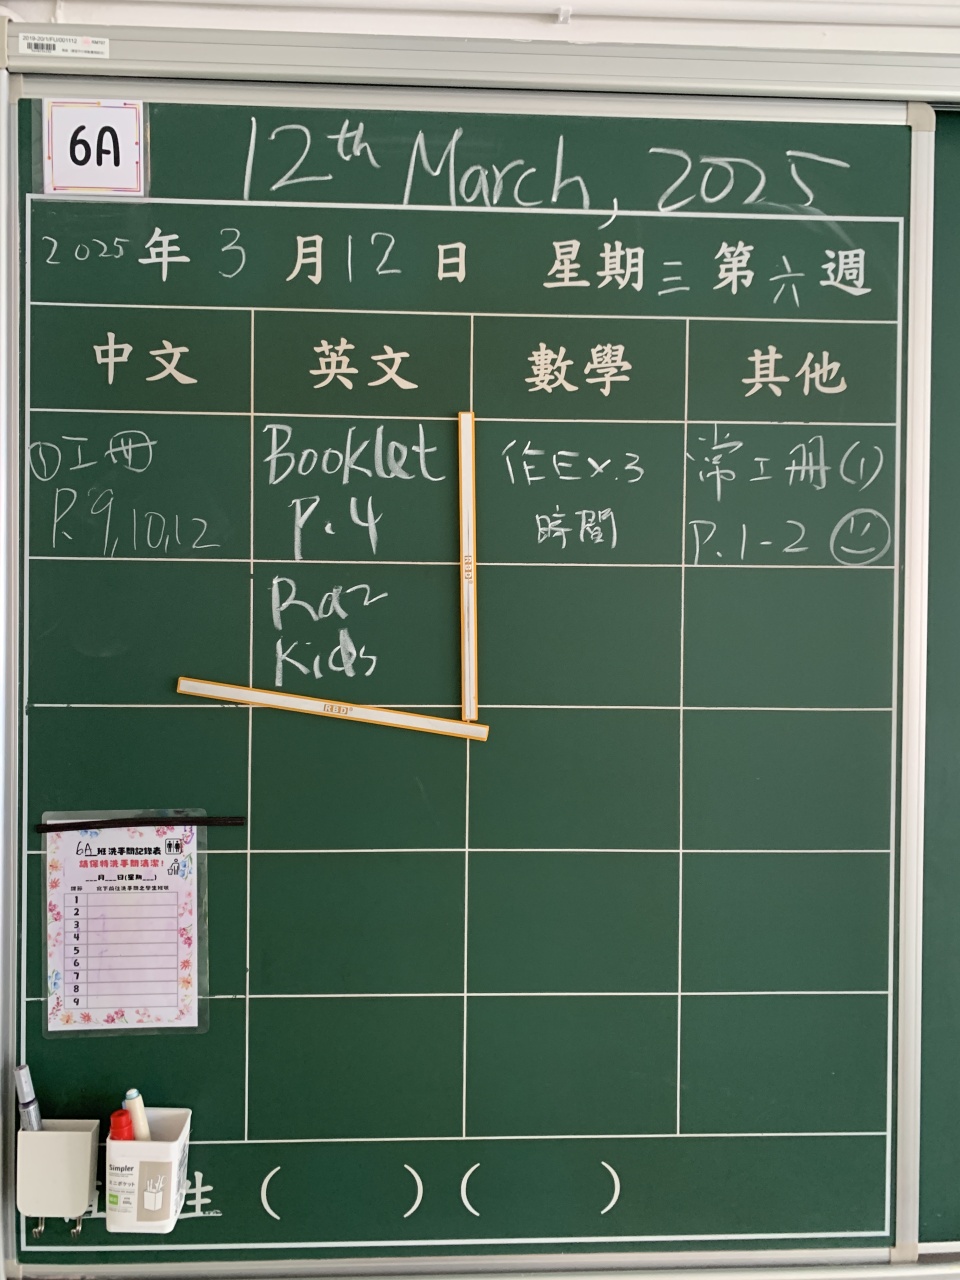 2019-20/1/FU/001112
6A
12th March, 2025
2025年3月12日 星期三 第六週
中文 英文 數學 其他
①工冊
P.9,10,12
Booklet
P.4
作Ex.3
時間
常工冊(1)
P.1-2
Raz
Kids
RBD
RBD
6A班洗手間記錄表
請保持洗手間清潔！
___月___日(星期___)
1
2
3
4
5
6
7
8
9
Simpler
ミニポケット
生 ( ) ( )